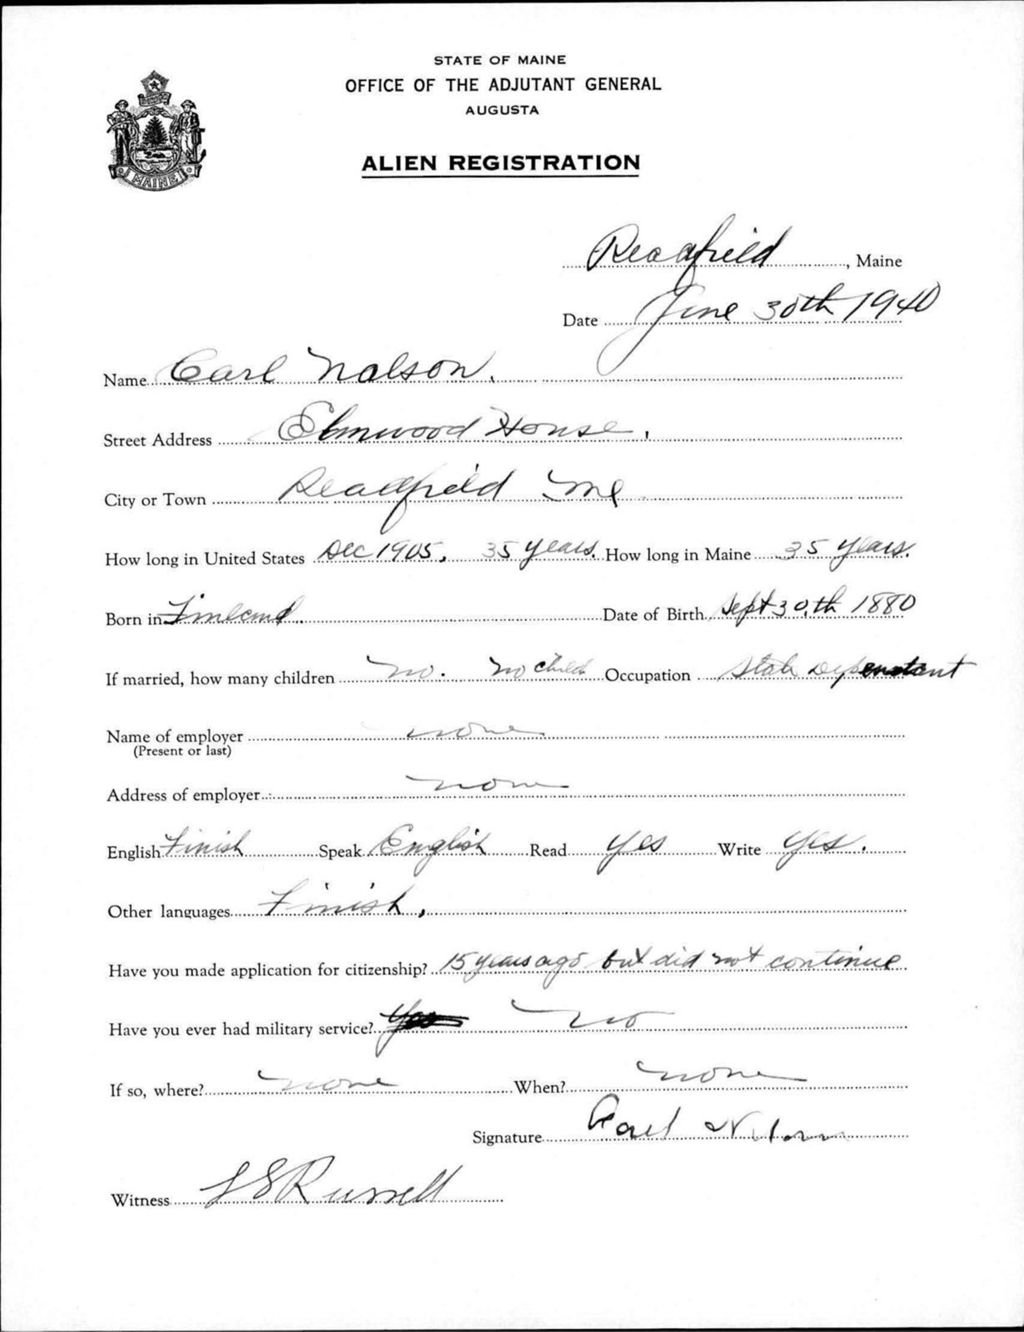 STATE OF MAINE
OFFICE OF THE ADJUTANT GENERAL
AUGUSTA
ALIEN REGISTRATION
MAINE
Readfield, Maine
Date June 30th 1940
Name Carl Nalson.
Street Address Elmwood House,
City or Town Readfield Me
How long in United States Dec 1905, 35 years. How long in Maine 35 years.
Born in Finland. Date of Birth Sept 30,th 1880
If married, how many children No. No child Occupation State Dependant
Name of employer none
(Present or last)
Address of employer none
English Finish Speak English Read Yes Write Yes.
Other languages Finish,
Have you made application for citizenship? 15 years ago but did not continue
Have you ever had military service? Yes No
If so, where? none When? none
Signature Carl
Witness L S Russell